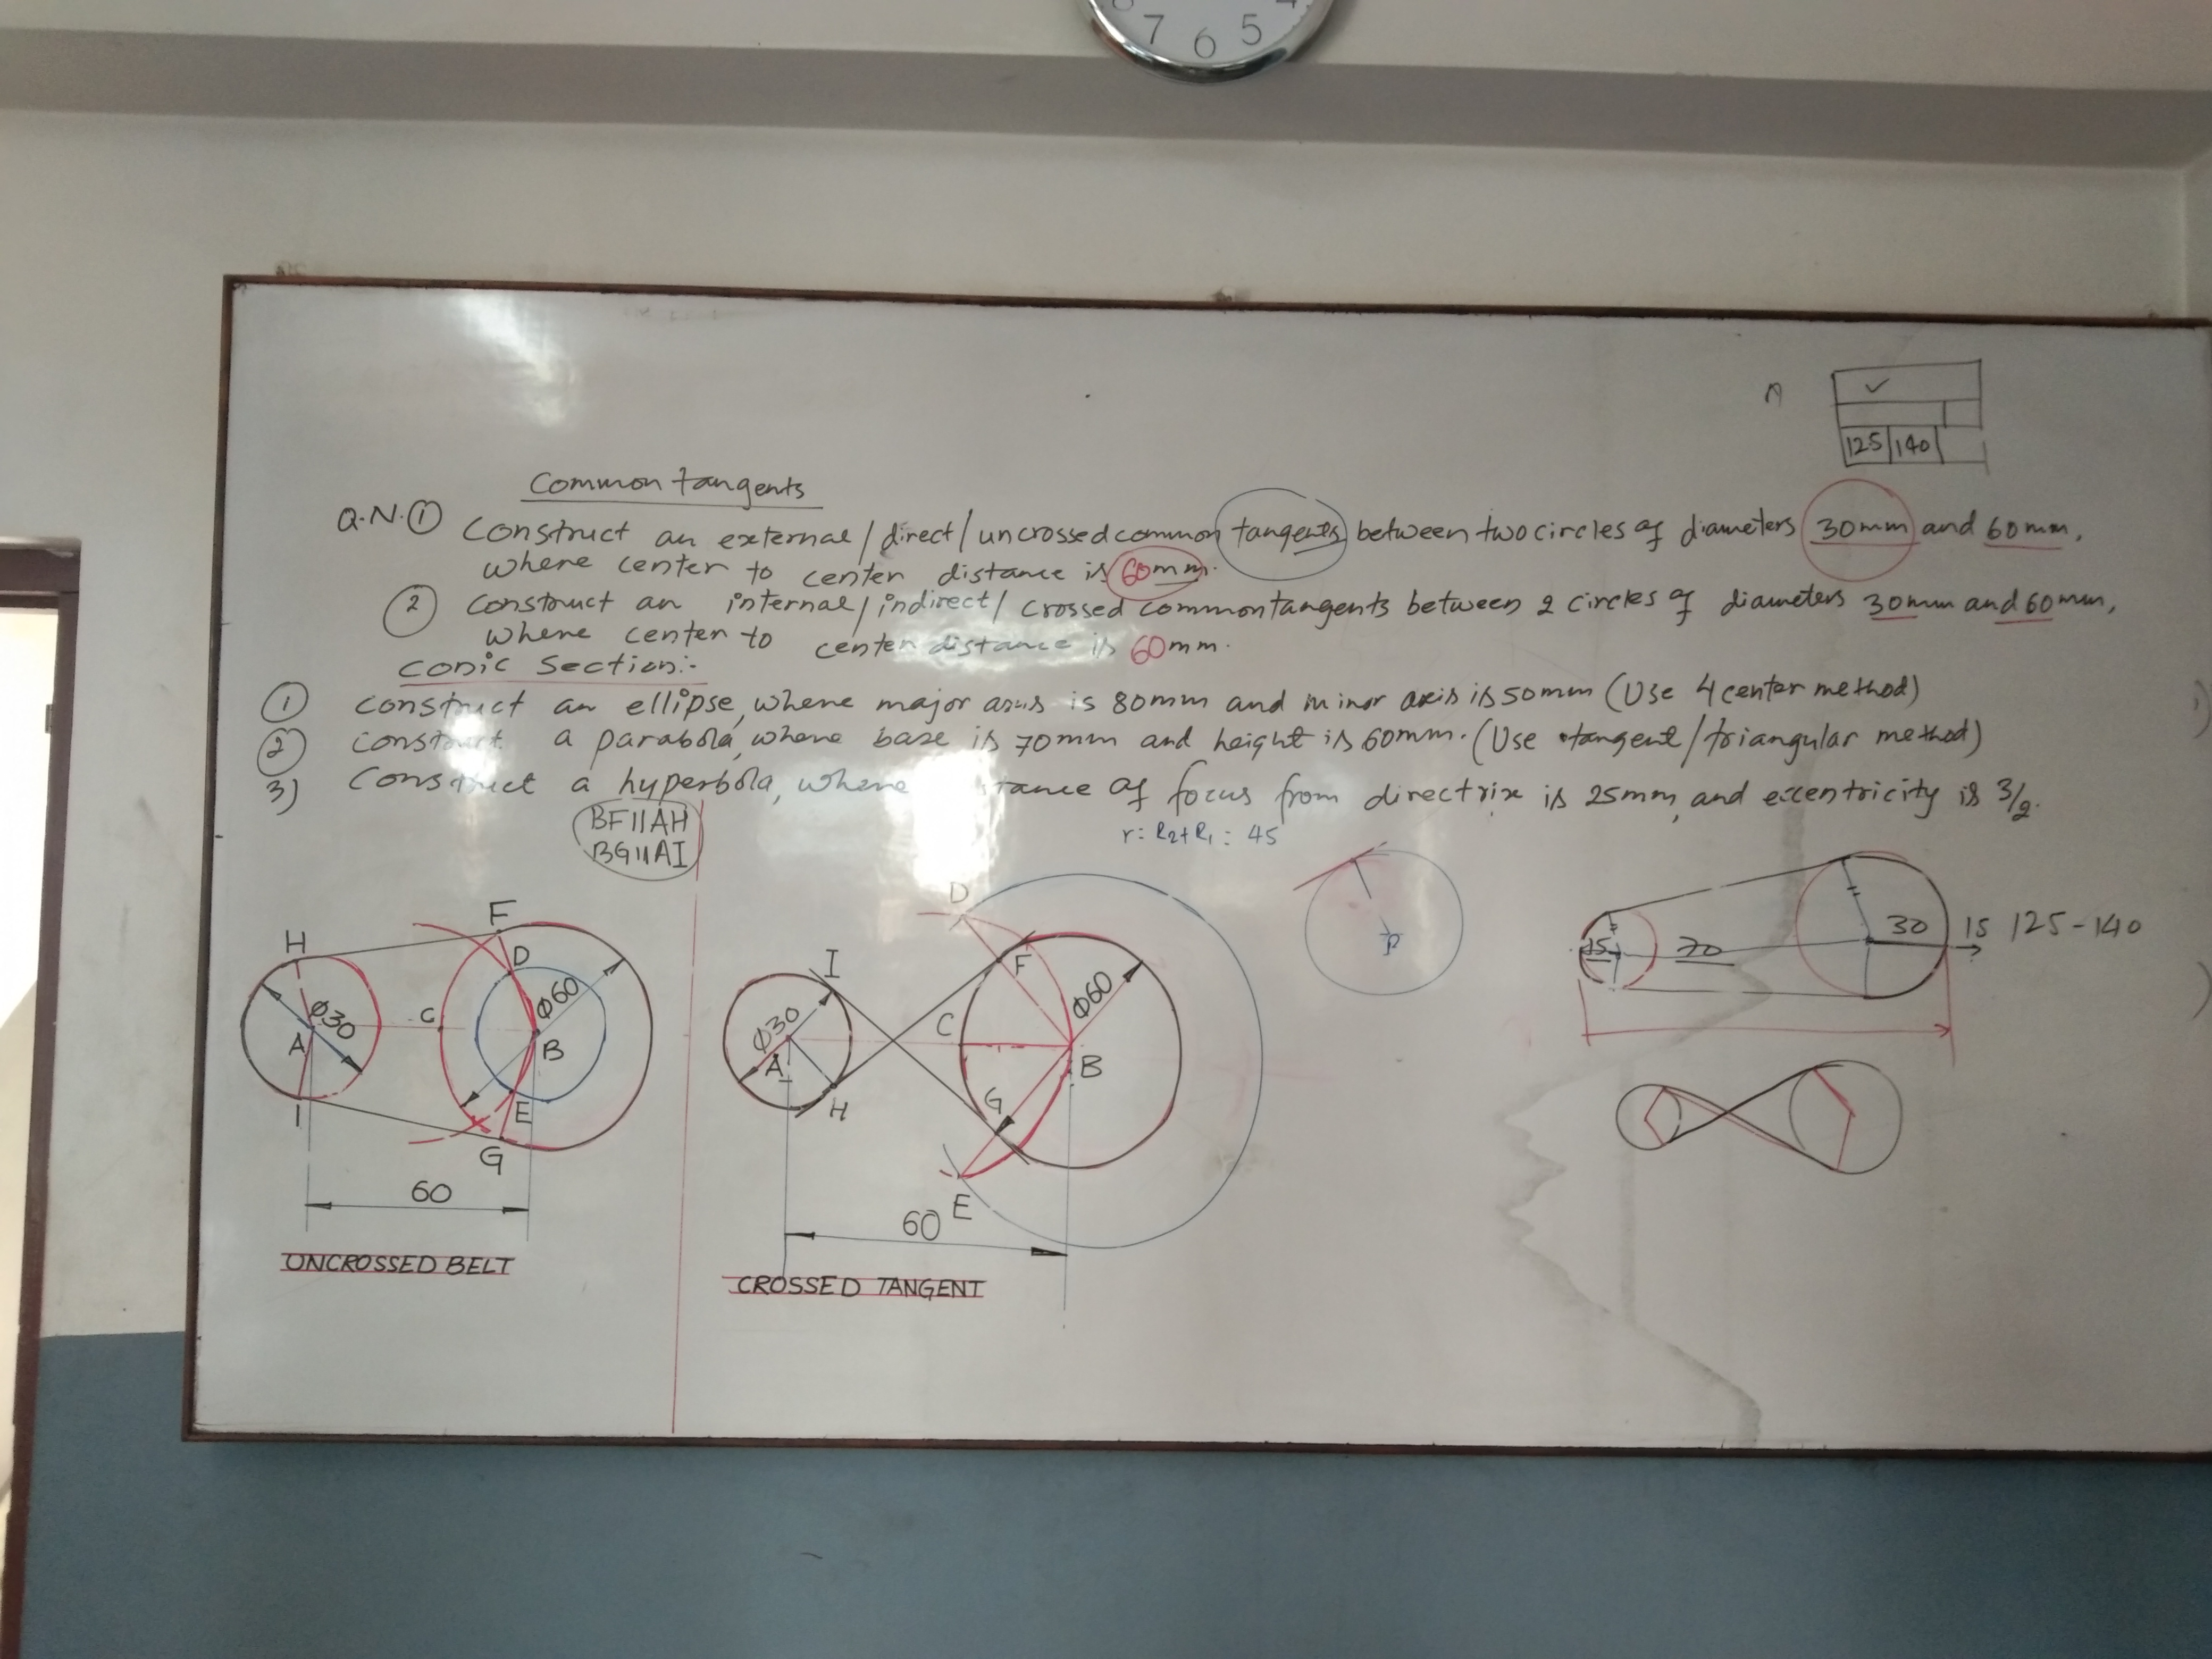 7 6 5
A
125 140
Common tangents
Q.N. 1 Construct an external/direct/uncrossed common tangents between two circles of diameters 30mm and 60mm,
where center to center distance is 60mm.
2 Construct an internal/indirect/crossed common tangents between 2 circles of diameters 30mm and 60mm,
where center to center distance is 60mm.
Conic Section:-
1 Construct an ellipse, where major axis is 80mm and minor axis is 50mm (Use 4 center method)
2 Construct a parabola, where base is 70mm and height is 60mm. (Use tangent/triangular method)
3) Construct a hyperbola, where tance of focus from directrix is 25mm, and eccentricity is 3/2.
BF||AH
BG||AI
r = R2+R1 = 45
H F D Ø30 A C Ø60 B I E G
60
UNCROSSED BELT
D I F Ø30 A C Ø60 B H G E
60
CROSSED TANGENT
15 70 30 15 125-140